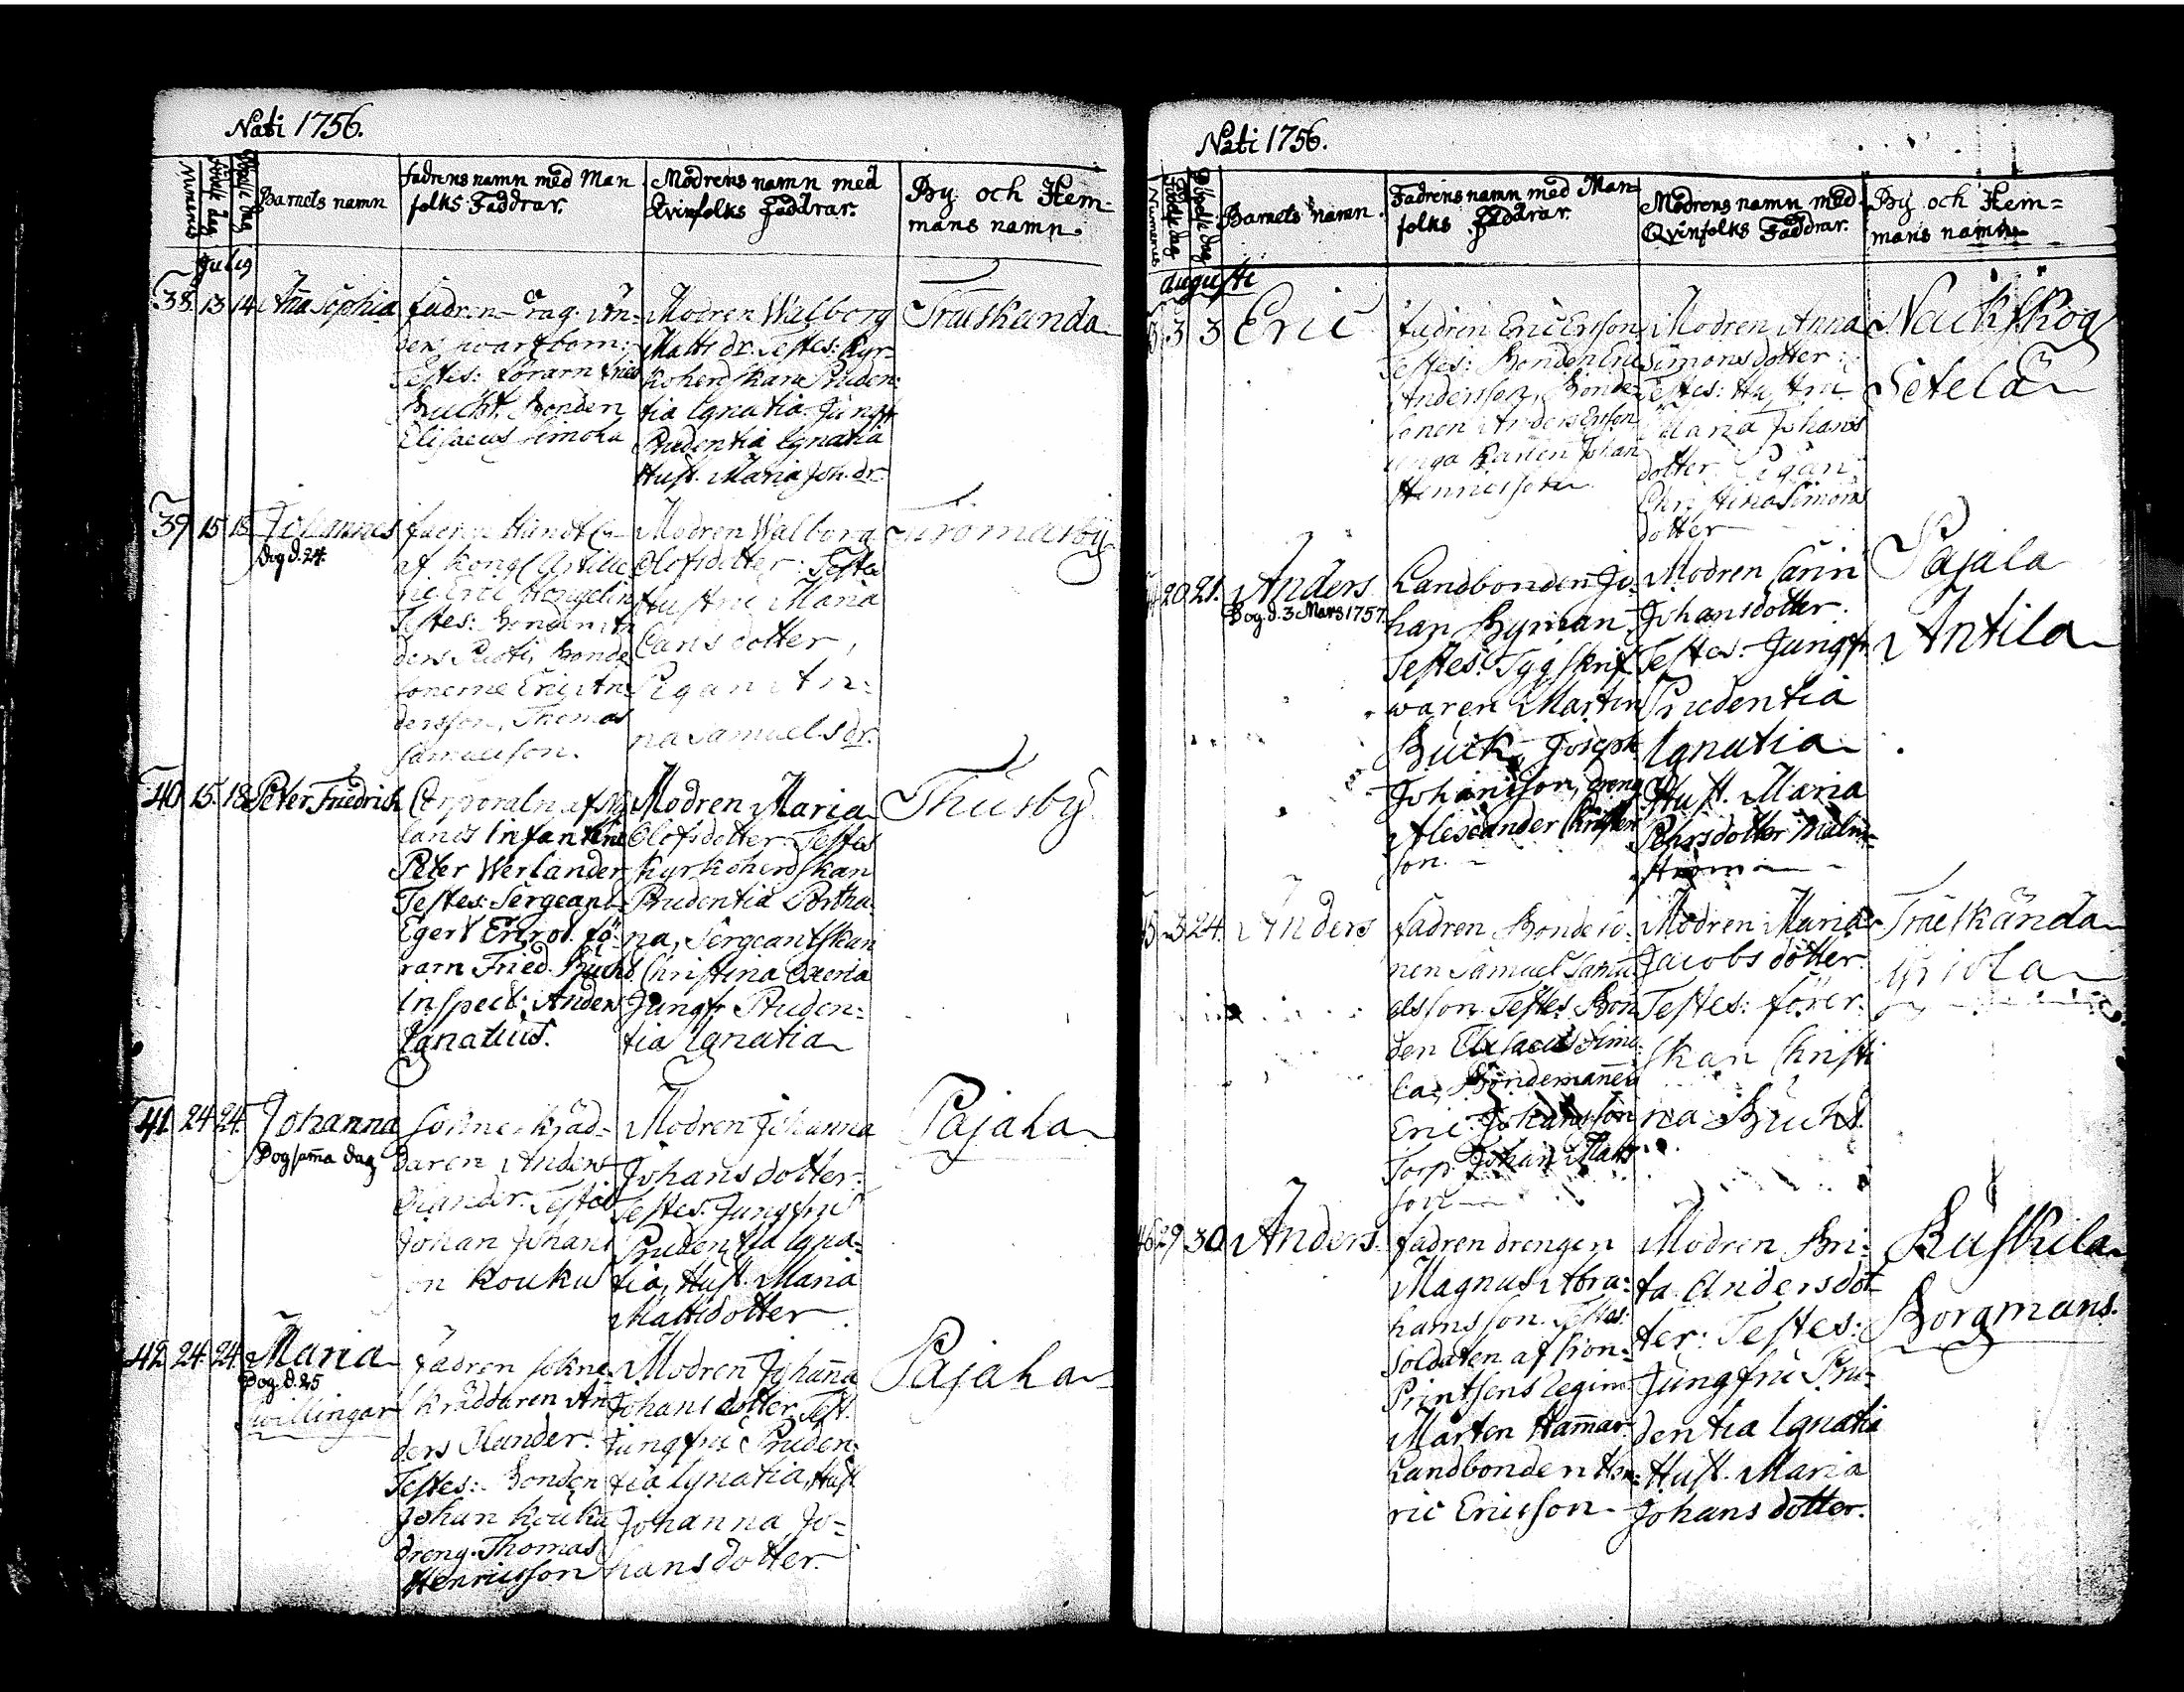 Nati 1756.
Numerus
Född dag
Döpelse dag
Barnets namn
fadrens namn med Man
folks Faddrar.
Modrens namn med
Qvinfolks Faddrar.
By och Hem-
mans namn.
Julius
38 13 14 Anna Sophia
fadren
Testes: förarn
Bucht. Bonden
Elisaeus Simola
Modren Walborg
Matts dr. Testes: Kyr-
koherdskan Pruden:
tia Ignatia Jungf
Prudentia Ignatia
Hust. Maria Joh. dr.
Träskanda
39 15 18 Johannes
Dog d. 24.
af Kongl Artille
rie Eric
Testes: Bonden An
ders Bonde
sonerne Eric An
dersson, Thomas
Samuelson.
Modren Walborg
Olofsdotter. Testes
Hustru Maria
Lars dotter,
Pigan An:
na Samuels dr.
40 15. 18. Peter Friedrich
Corporaln af Ny
lands Infanterie
Peter Werlander
Testes: Sergeant
Egert Enrot. fö-
rarn Fried. Bucht
Inspect: Anders
Ignatius.
Modren Maria
Olofsdotter. Testes
Kyrkoherdskan
Prudentia Portha-
na, Sergeantskan
Christina
Jungfr Pruden:
tia Ignatia
Thusby
41. 24 24. Johanna
Dog samma dag
Sockneskräd-
daren Anders
Olander. Testes
Johan Johans
on Kouku
Modren Johanna
Johansdotter.
Testes. Jungfru
Prudentia Igna-
tia, Hust. Maria
Mattsdotter
Pajala
42 24. 24. Maria
Dog. d. 25
Twillingar
Fadren sokne
skräddaren An
ders Olander.
Testes: Bonden
Johan Kouku
dreng. Thomas
Henricsson
Modren Johanna
Johans dotter. Test.
Jungfru Pruden:
tia Ignatia, Hust
Johanna Jo-
hansdotter.
Pajala
Nati 1756.
Numerus
Född dag
Döpelse dag
Barnets namn.
Fadrens namn med Man-
folks Faddrar.
Modrens namn med
Qvinfolks Faddrar.
By och Hem=
mans namn
Augusti
3 3 Eric
fadren Eric Ersson
Testes: Bonden Eric
Andersson, Bonde-
sonen Anders Ersson
unga Karlen Johan
Modren Anna
Simonsdotter:
Testes: Hustru
Maria Johans
dotter. Pigan
Christina Simons
dotter
Näckskog
Setelä
20 21. Anders
Dog. d. 3 Mars 1757.
Landbonden Jo-
han Byman
Testes: Tygskrif
waren Martin
Buck, Joseph
Johansson, dreng
Alexander Christer
son.
Modren Carin
Johansdotter.
Testes: Jungfr
Prudentia
Ignatia
Hust. Maria
Pehrsdotter Malm-
ström
Pajala
Antila
24. Anders
fadren Bondeso-
nen Samuel Samu-
elsson. Testes Bon
den Elisaeus Simo-
la, Bondemannen
Eric Johansson
Torp. Johan Matts
son
Modren Maria
Jacobs dotter.
Testes: förer-
skan Christi
na Bucht.
Träskända
29 30. Anders.
fadren drengen
Magnus Abra:
hamsson. Testes:
Soldaten af Cron-
Printsens Regim:
Mårten Hammar.
Landbonden Hen-
ric Ericsson
Modren Bri:
ta Andersdot
ter: Testes:
Jungfru Pru-
dentia Ignatia
Hust. Maria
Johans dotter.
Ruskila
Borgmans.